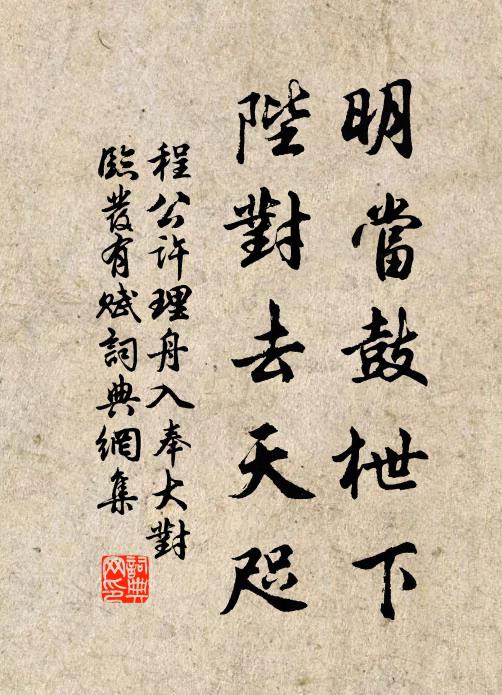 明當鼓枻下
陛對去天咫
程公許理舟入奉大對
臨發有賦詞典網集
詞典
网印